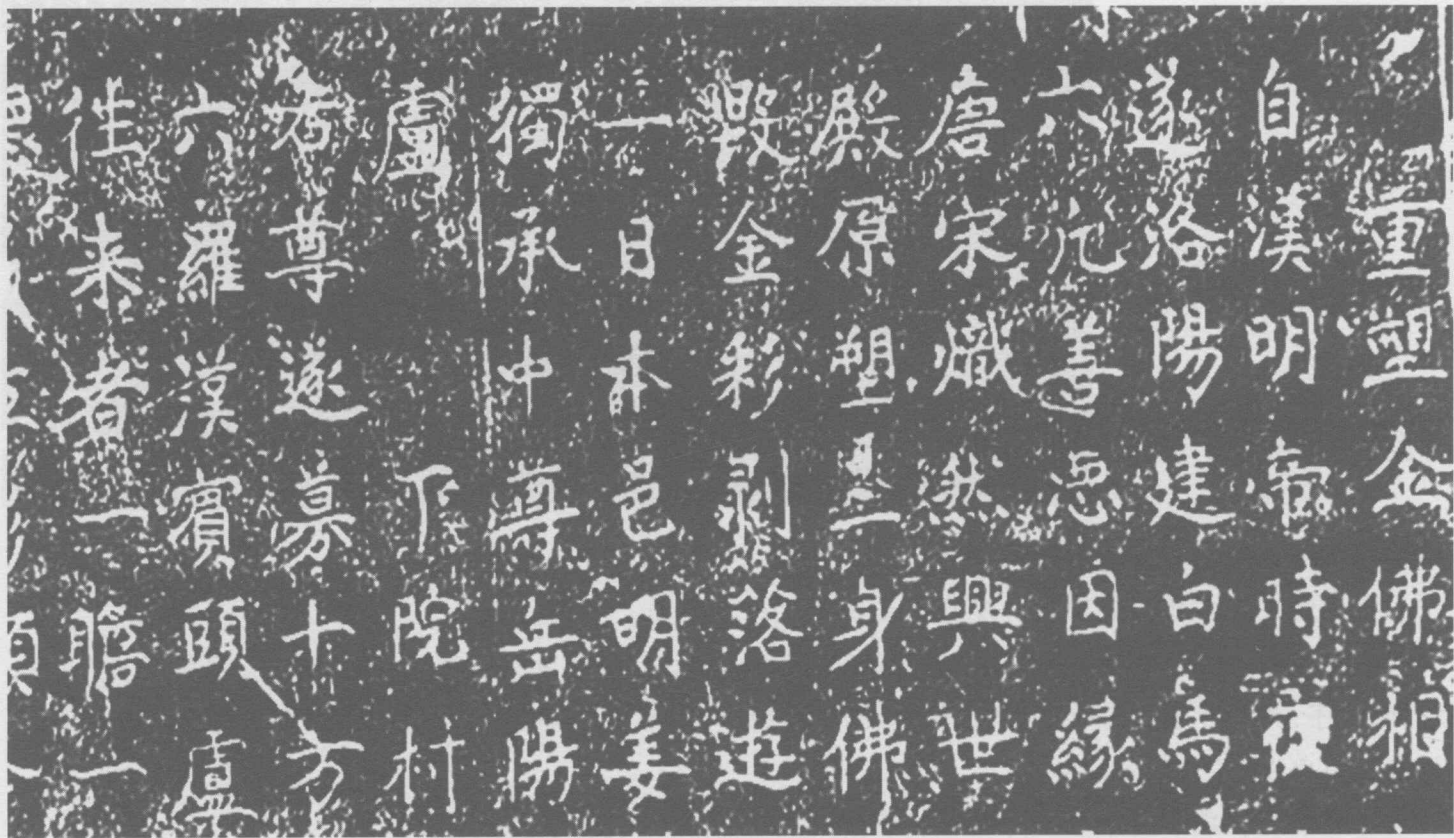 重塑金佛相
自漢明帝時夜
遂洛陽建白馬
六凡善惡因緣
唐宋熾然興世
殿原塑三身佛
毀金彩剥落遊
一日本邑明姜
獨承中尊岳陽
盧下院村
尊遂募十方
六羅漢賓頭盧
往来者一瞻一